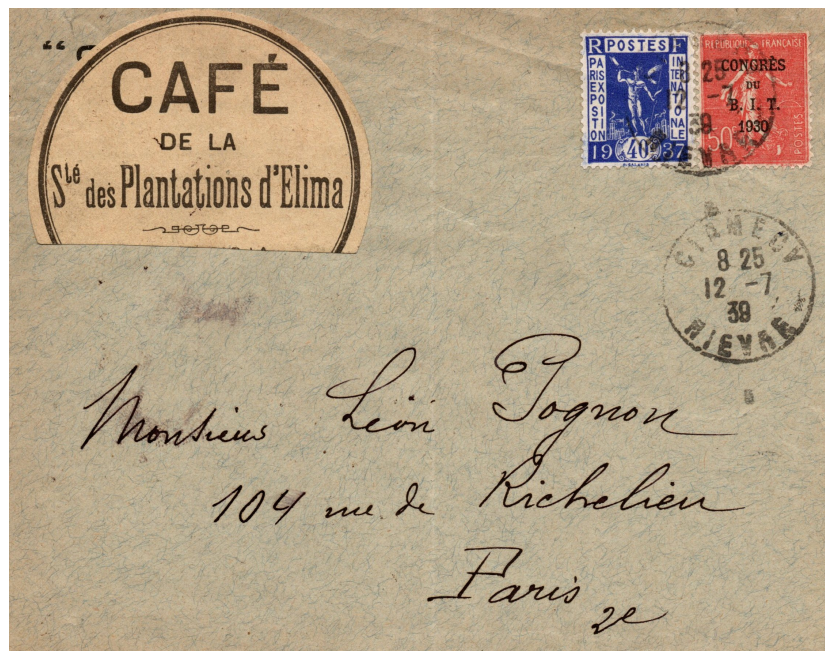 CAFÉ
DE LA
Sté des Plantations d'Elima
RF
POSTES
PARIS EXPOSITION
INTERNATIONALE
1937
40c
RÉPUBLIQUE FRANÇAISE
CONGRÈS
DU
B. I. T.
1930
50c
POSTES
8 25
12 -7
39
CLAMECY
8 25
12 -7
39
NIEVRE
Monsieur Léon Pognon
104 rue de Richelieu
Paris
2e